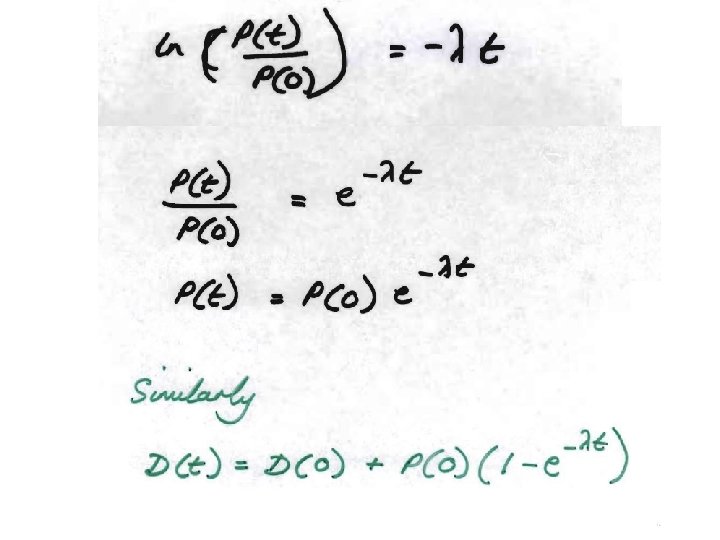 ln (P(t)/P(0)) = -λt
P(t)/P(0) = e^{-λt}
P(t) = P(0) e^{-λt}
Similarly
D(t) = D(0) + P(0)(1 - e^{-λt})